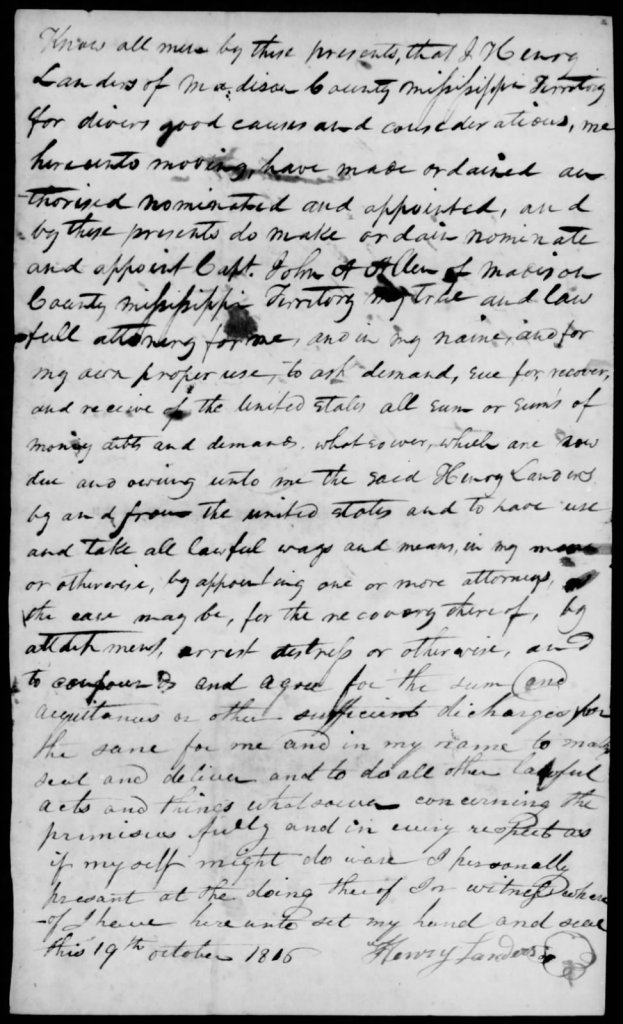 Know all men by these presents, that I Henry
Landers of Madison County Mississippi Territory
for divers good causes and considerations, me
hereunto moving, have made ordained au
thorised nominated and appointed, and
by these presents do make ordain nominate
and appoint Capt. John A Allen of Madison
County Mississippi Territory my true and law
full attorney for me, and in my name, and for
my own proper use, to ask demand, sue for, recover,
and receive of the United States all sum or sums of
money debts and demands whatsoever, which are now
due and owing unto me the said Henry Landers
by and from the united states and to have use
and take all lawful ways and means, in my
or otherwise, by appointing one or more attorneys,
the case may be, for the recovery thereof, by
attachment, arrest distress or otherwise, and
to compound and agree for the sum and
acquitances or other sufficient discharges for
the same for me and in my name to make
seal and deliver and to do all other lawful
acts and things whatsoever concerning the
premises fully and in every respect as
if myself might do ware I personally
present at the doing thereof In witness where
of I have here unto set my hand and seal
this 19th october 1816 Henry Landers